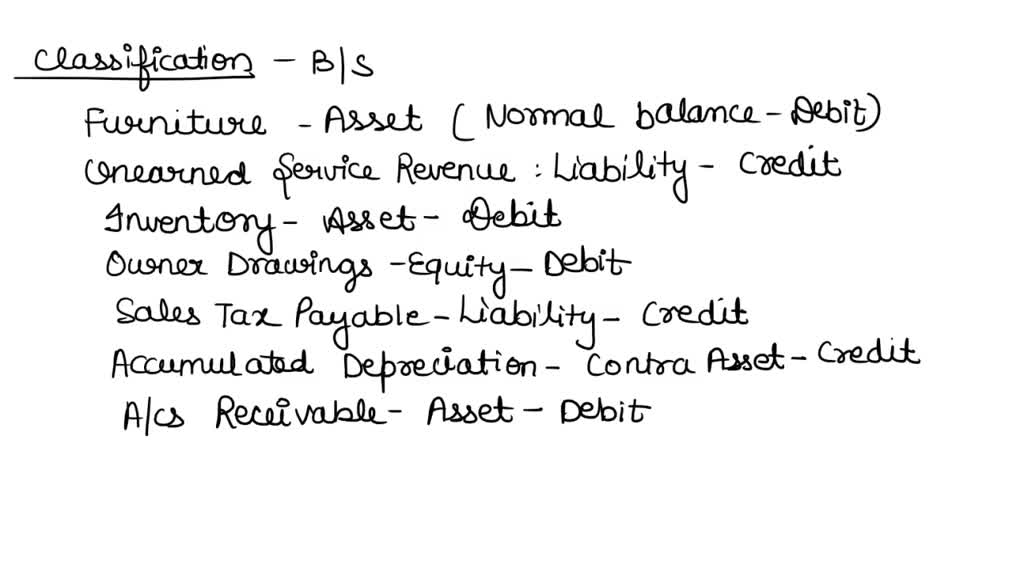 Classification - B/S
Furniture - Asset (Normal balance - Debit)
Unearned Service Revenue : Liability - Credit
Inventory - Asset - Debit
Owner Drawings - Equity - Debit
Sales Tax Payable - Liability - Credit
Accumulated Depreciation - Contra Asset - Credit
A/cs Receivable - Asset - Debit